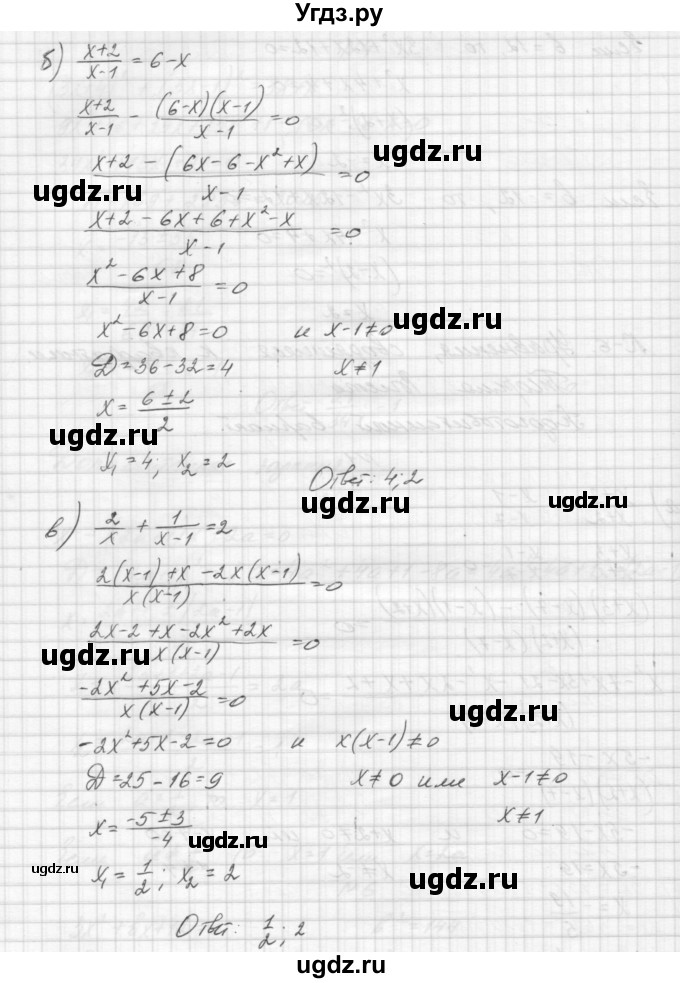 Угдз.ру
б) (x+2)/(x-1) = 6-x
(x+2)/(x-1) - ((6-x)(x-1))/(x-1) = 0
ugdz.ru
(x+2-(6x-6-x²+x))/(x-1) = 0
ugdz.ru ugdz.ru
(x+2-6x+6+x²-x)/(x-1) = 0
(x²-6x+8)/(x-1) = 0
x²-6x+8=0 и x-1≠0
ugdz.ru
Д=36-32=4 x≠1
x = (6±2)/2
ugdz.ru
x₁=4; x₂=2
Ответ: 4; 2
ugdz.ru ugdz.ru
в) 2/x + 1/(x-1) = 2
(2(x-1)+x-2x(x-1))/(x(x-1)) = 0
ugdz.ru
(2x-2+x-2x²+2x)/(x(x-1)) = 0
ugdz.ru
(-2x²+5x-2)/(x(x-1)) = 0
ugdz.ru
-2x²+5x-2=0 и x(x-1)≠0
Д=25-16=9 x≠0 или x-1≠0
x = (-5±3)/-4 x≠1
ugdz.ru
x₁ = 1/2; x₂ = 2
ugdz.ru ugdz.ru
Ответ: 1/2; 2
ugdz.ru